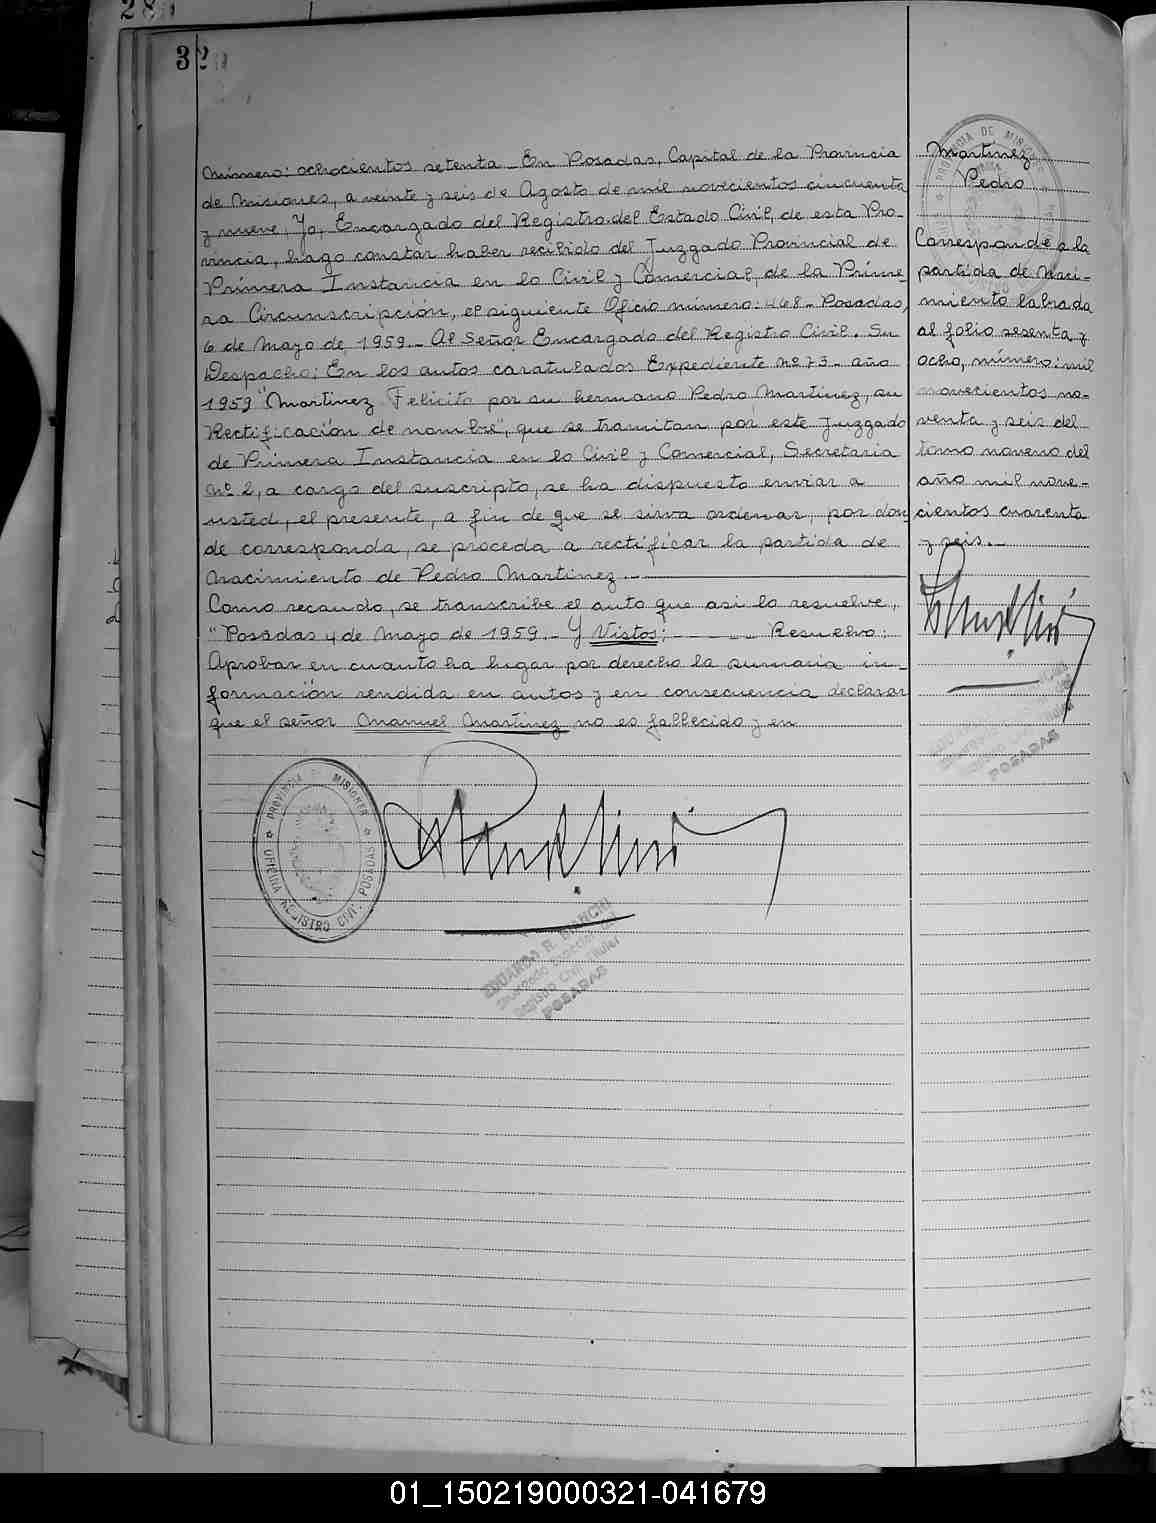 28
320
Número: ochocientos setenta - En Posadas, Capital de la Provincia
de Misiones, a veinte y seis de Agosto de mil novecientos cincuenta
y nueve, Yo, Encargado del Registro del Estado Civil, de esta Pro-
vincia, hago constar haber recibido del Juzgado Provincial de
Primera Instancia en lo Civil y Comercial, de la Prime-
ra Circunscripción, el siguiente Oficio número: 468 - Posadas,
6 de Mayo de 1959.- Al Señor Encargado del Registro Civil. Su
Despacho: En los autos caratulados Expediente nº 73 - año
1959 "Martinez Felicito por su hermano Pedro Martinez, su
Rectificación de nombre", que se tramitan por este Juzgado
de Primera Instancia en lo Civil y Comercial, Secretaria
Nº 2, a cargo del suscripto, se ha dispuesto enviar a
usted, el presente, a fin de que se sirva ordenar, por don-
de corresponda, se proceda a rectificar la partida de
nacimiento de Pedro Martinez.-
Como recaudo, se transcribe el auto que asi lo resuelve,
"Posadas 4 de Mayo de 1959.- Y Vistos: - - - - Resuelvo:
Aprobar en cuanto ha lugar por derecho la sumaria in-
formación rendida en autos y en consecuencia declarar
que el señor Manuel Martinez no es fallecido y en
PROVINCIA DE MISIONES
OFICINA REGISTRO CIVIL POSADAS
EDUARDO R. BIANCHI
Registro Civil Titular
POSADAS
PROVINCIA DE MISIONES
Martinez
Pedro
Corresponde a la
partida de Naci-
miento labrada
al folio sesenta y
ocho, número: mil
novecientos no-
venta y seis del
tomo noveno del
año mil nove-
cientos cuarenta
y seis.-
POSADAS
01_150219000321-041679